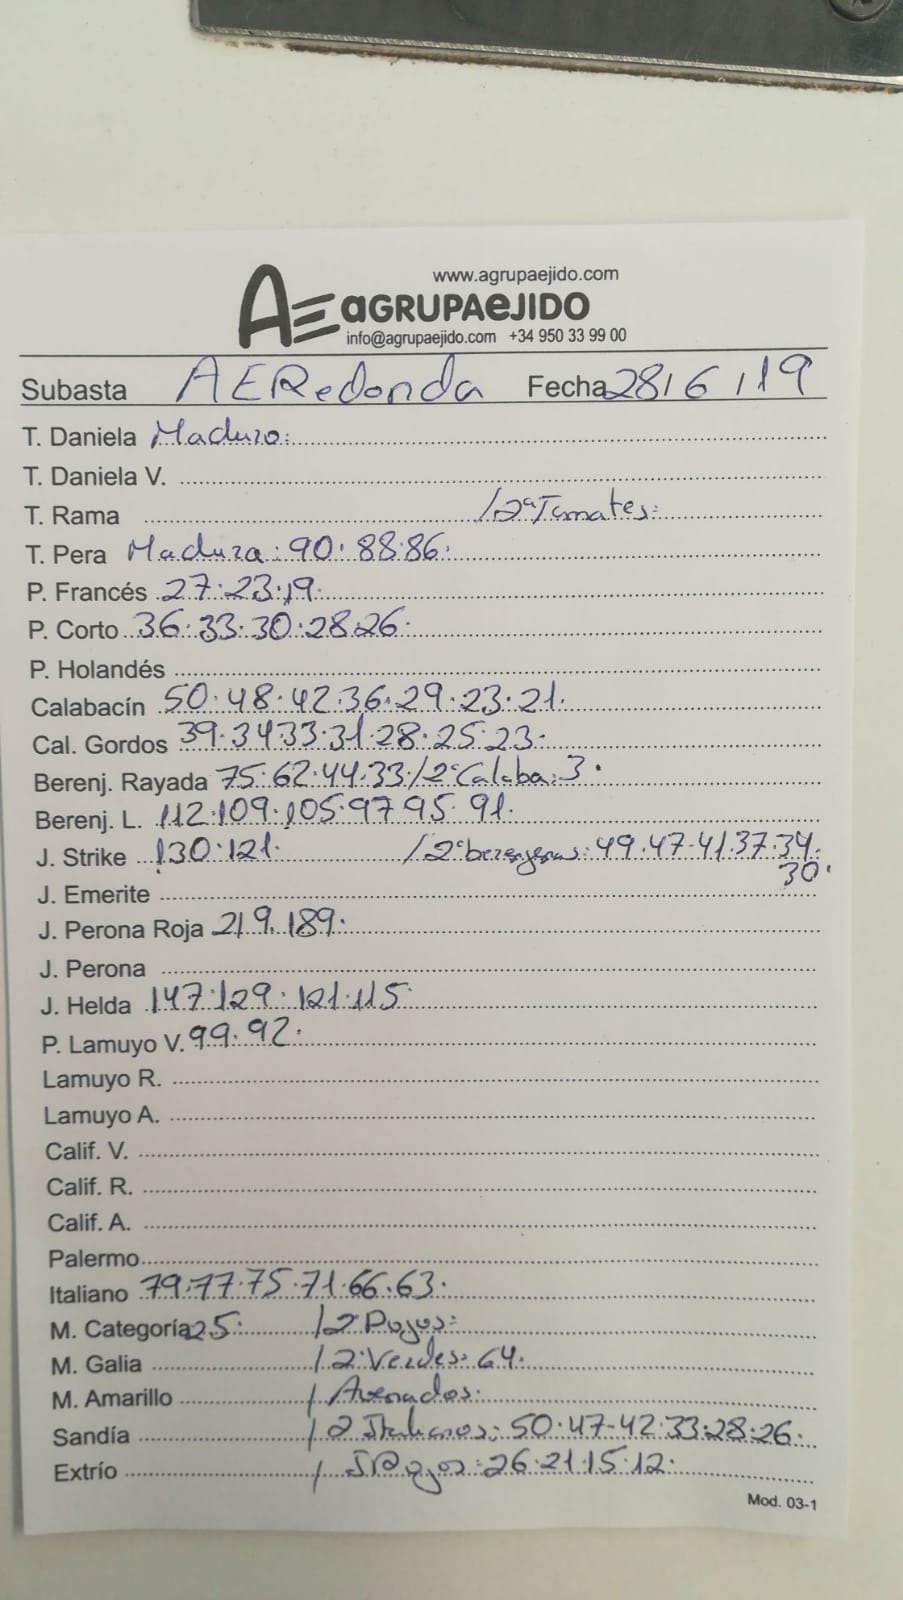 www.agrupaejido.com
AE aGRUPAeJIDO
info@agrupaejido.com +34 950 33 99 00
Subasta AERedonda Fecha 28/6/19
T. Daniela Maduro:
T. Daniela V.
T. Rama /2ª Tomates:
T. Pera Madura: 90. 88.86.
P. Francés 27.23.19.
P. Corto 36.33.30.28.26.
P. Holandés
Calabacín 50.48.42.36.29.23.21.
Cal. Gordos 39.34.33.31.28.25.23.
Berenj. Rayada 75.62.44.33./2ªCalaba:3.
Berenj. L. 112.109.105.97.95.91.
J. Strike 130.121. /2ªberenjenas:49.47.41.37.34.
30.
J. Emerite
J. Perona Roja 219.189.
J. Perona
J. Helda 147.129.121.115.
P. Lamuyo V. 99.92.
Lamuyo R.
Lamuyo A.
Calif. V.
Calif. R.
Calif. A.
Palermo
Italiano 79.77.75.71.66.63.
M. Categoría 25. /2ª Rojos:
M. Galia /2ª Verdes: 64.
M. Amarillo / Asenados:
Sandía /2 Italianos: 50.47.42.33.28.26.
Extrío / I Rojos: 26.21.15.12.
Mod. 03-1